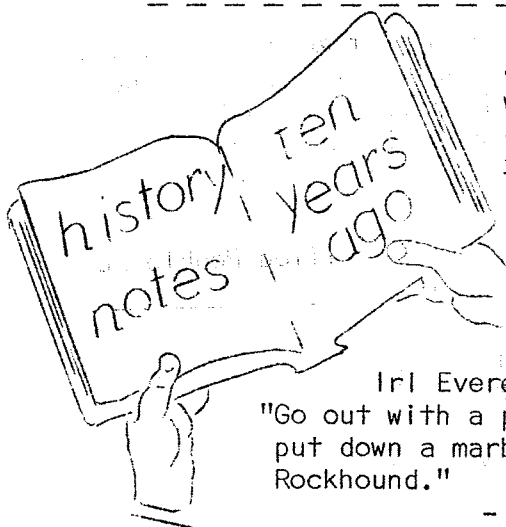 history
notes
Ten
years
ago
Irl Evere
"Go out with a p
put down a marb
Rockhound."